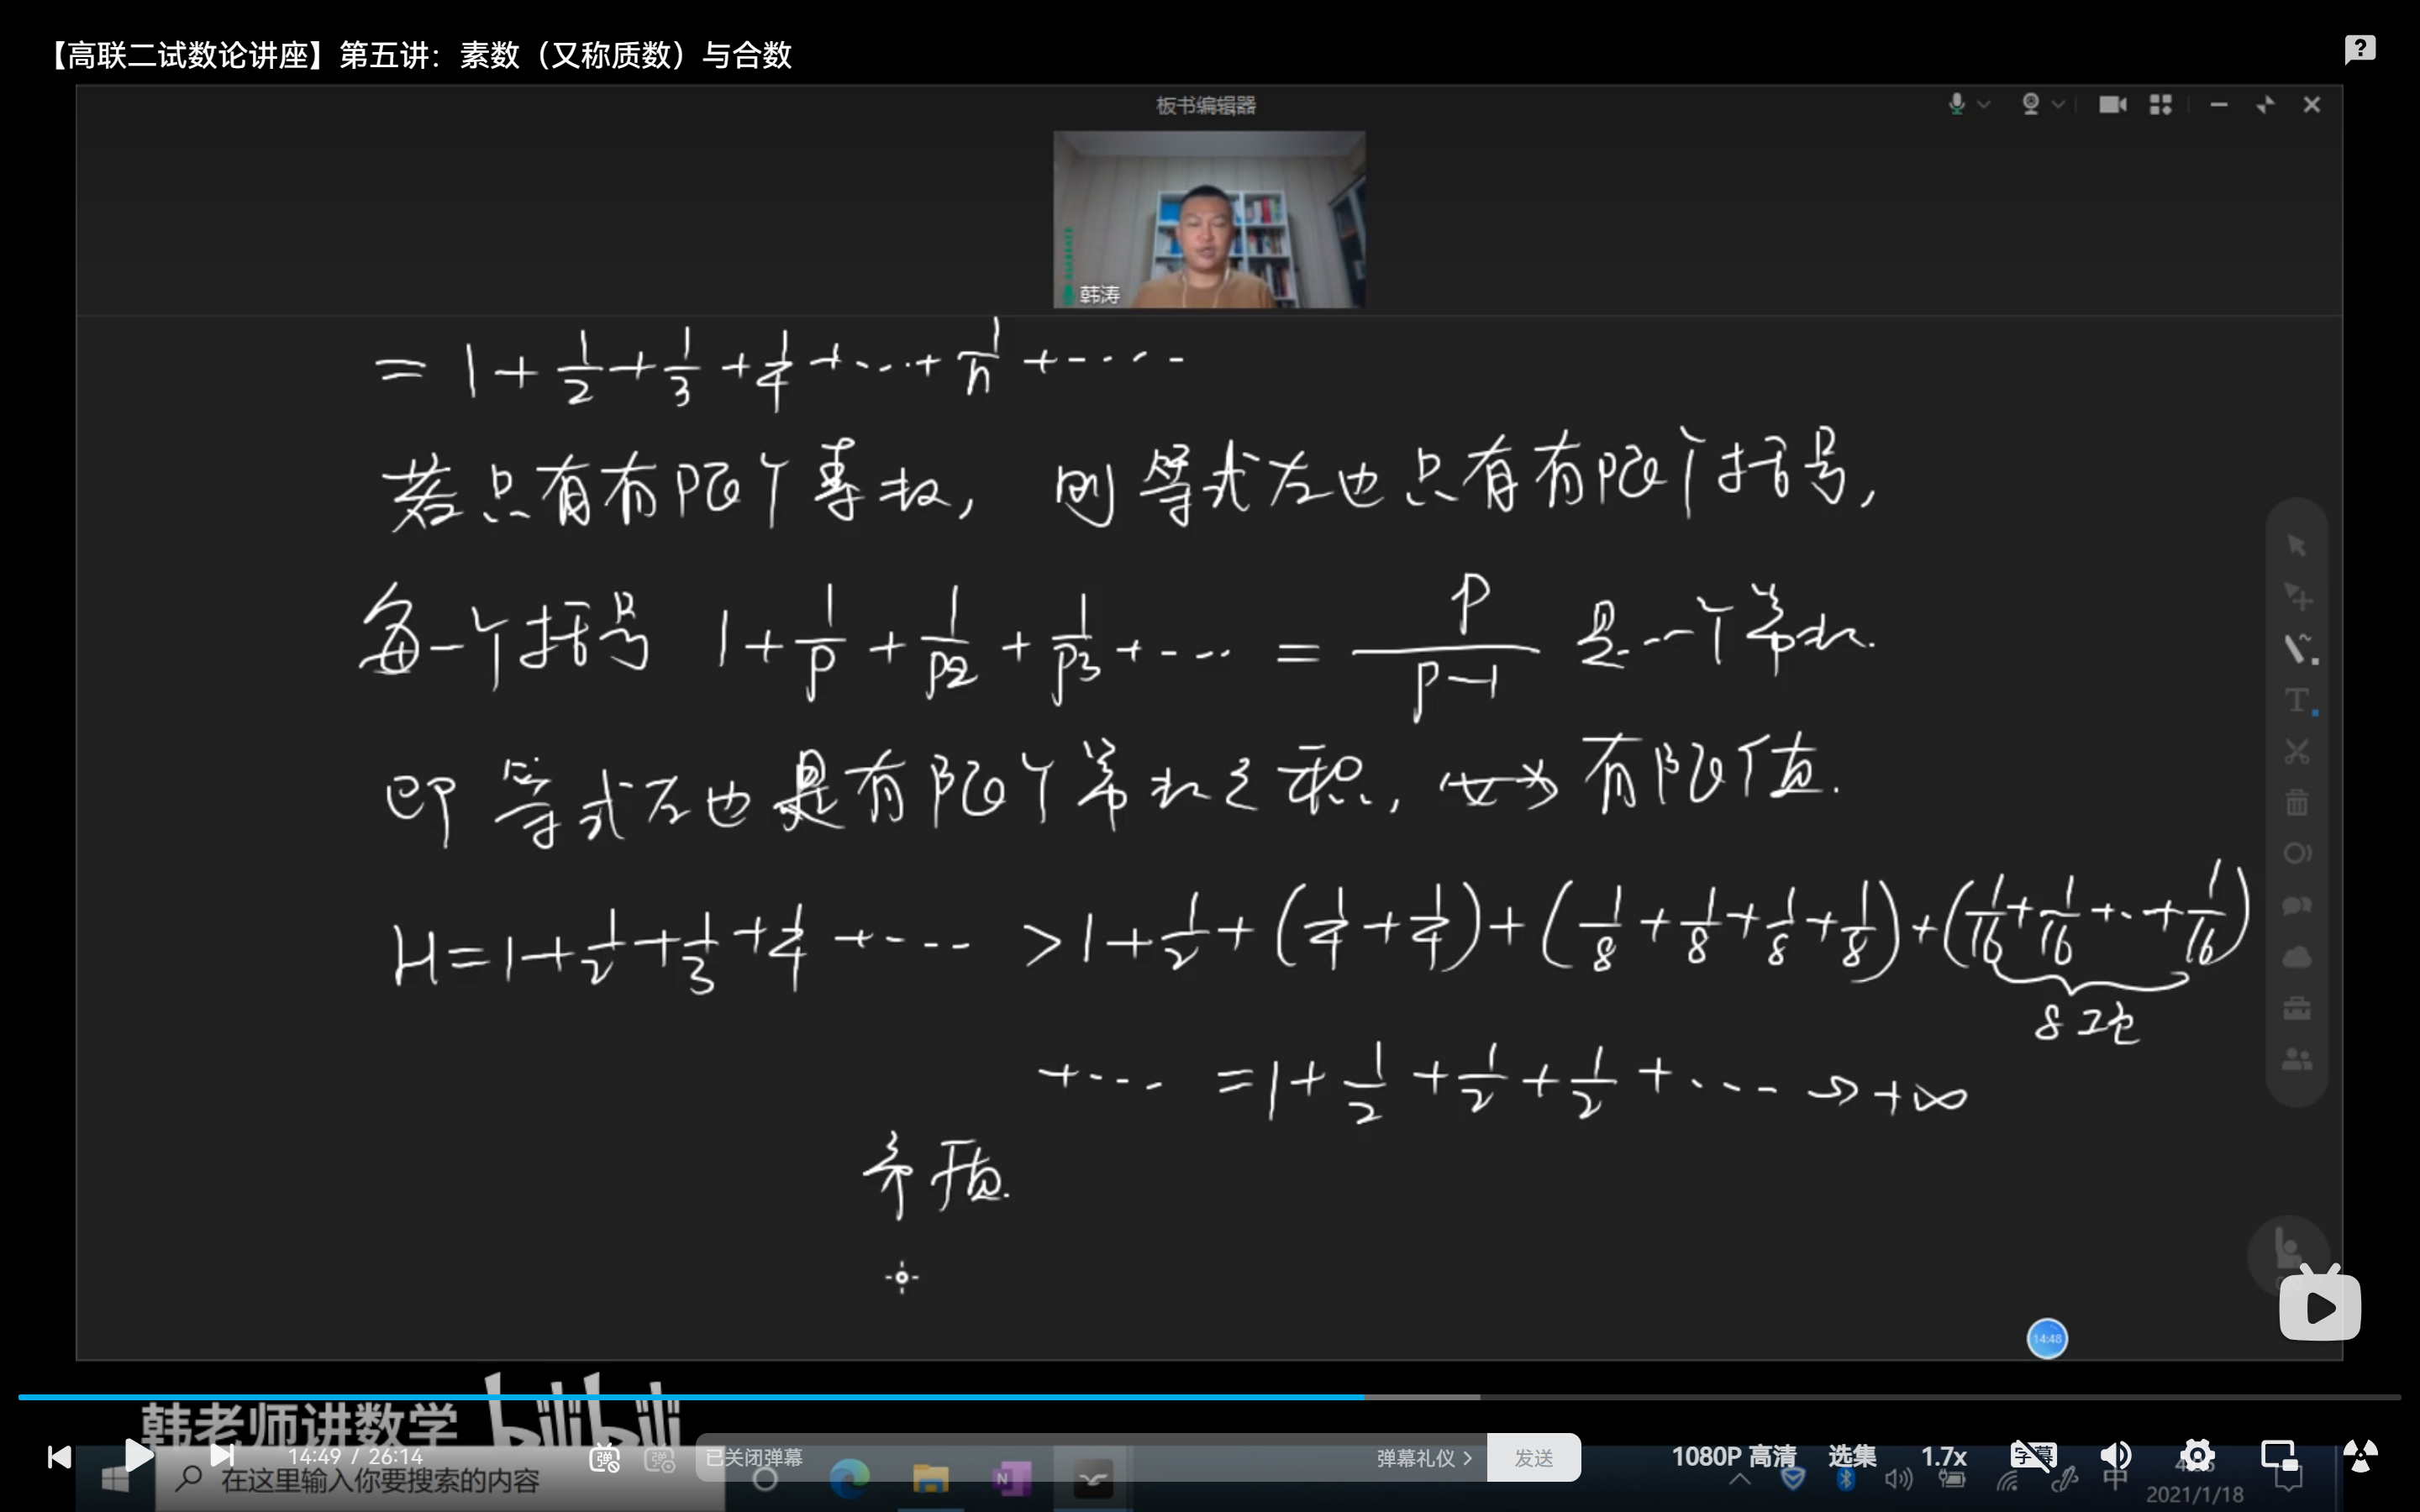 【高联二试数论讲座】第五讲：素数（又称质数）与合数
板书编辑器
韩涛
= 1 + 1/2 + 1/3 + 1/4 + ... + 1/n + ....
若只有有限个素数, 则等式左也只有有限个括号,
每一个括号 1 + 1/p + 1/p2 + 1/p3 + ... = p/(p-1) 是一个常数.
即等式左也是有限个常数之积, 必为有限值.
H = 1 + 1/2 + 1/3 + 1/4 + ... > 1 + 1/2 + (1/4 + 1/4) + (1/8 + 1/8 + 1/8 + 1/8) + (1/16 + 1/16 + .. + 1/16)
8项
+ ... = 1 + 1/2 + 1/2 + 1/2 + .... → +∞
矛盾.
14:48
韩老师讲数学 bilibili
14:49 / 26:14
已关闭弹幕
弹幕礼仪 >
发送
1080P 高清
选集
1.7x
字幕
在这里输入你要搜索的内容
中
2021/1/18